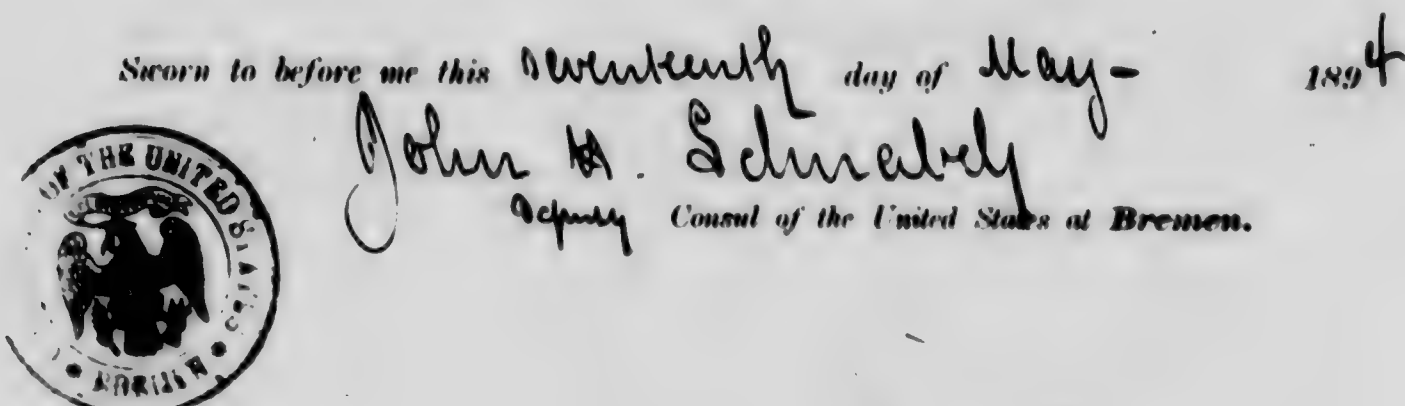 Sworn to before me this seventeenth day of May - 1894
John H. Schnabely
Deputy Consul of the United States at Bremen.
OF THE UNITED STATES
BREMEN